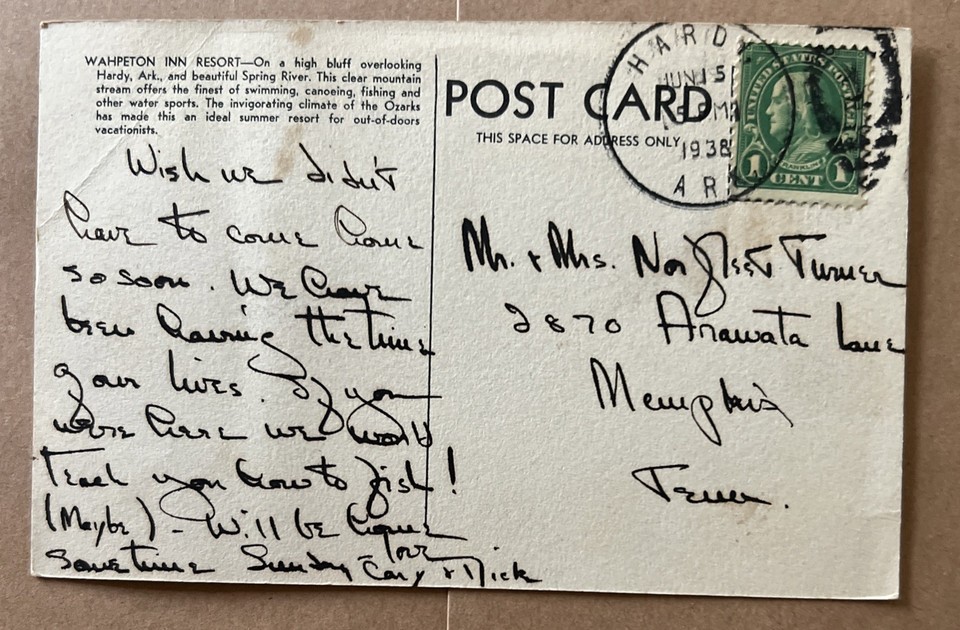 WAHPETON INN RESORT—On a high bluff overlooking
Hardy, Ark., and beautiful Spring River. This clear mountain
stream offers the finest of swimming, canoeing, fishing and
other water sports. The invigorating climate of the Ozarks
has made this an ideal summer resort for out-of-doors
vacationists.
Wish we didn't
have to come home
so soon. We have
been having the time
of our lives. If you
were here we would
teach you how to fish!
(Maybe) - Will be home
sometime Sunday
Love
& Dick
POST CARD
THIS SPACE FOR ADDRESS ONLY
HARD
JUN 15
PM
1938
AR
UNITED STATES POSTAGE
FRANKLIN
1 CENT 1
Mr. & Mrs. Norfleet Turner
2870 Arawata Lane
Memphis
Tenn.